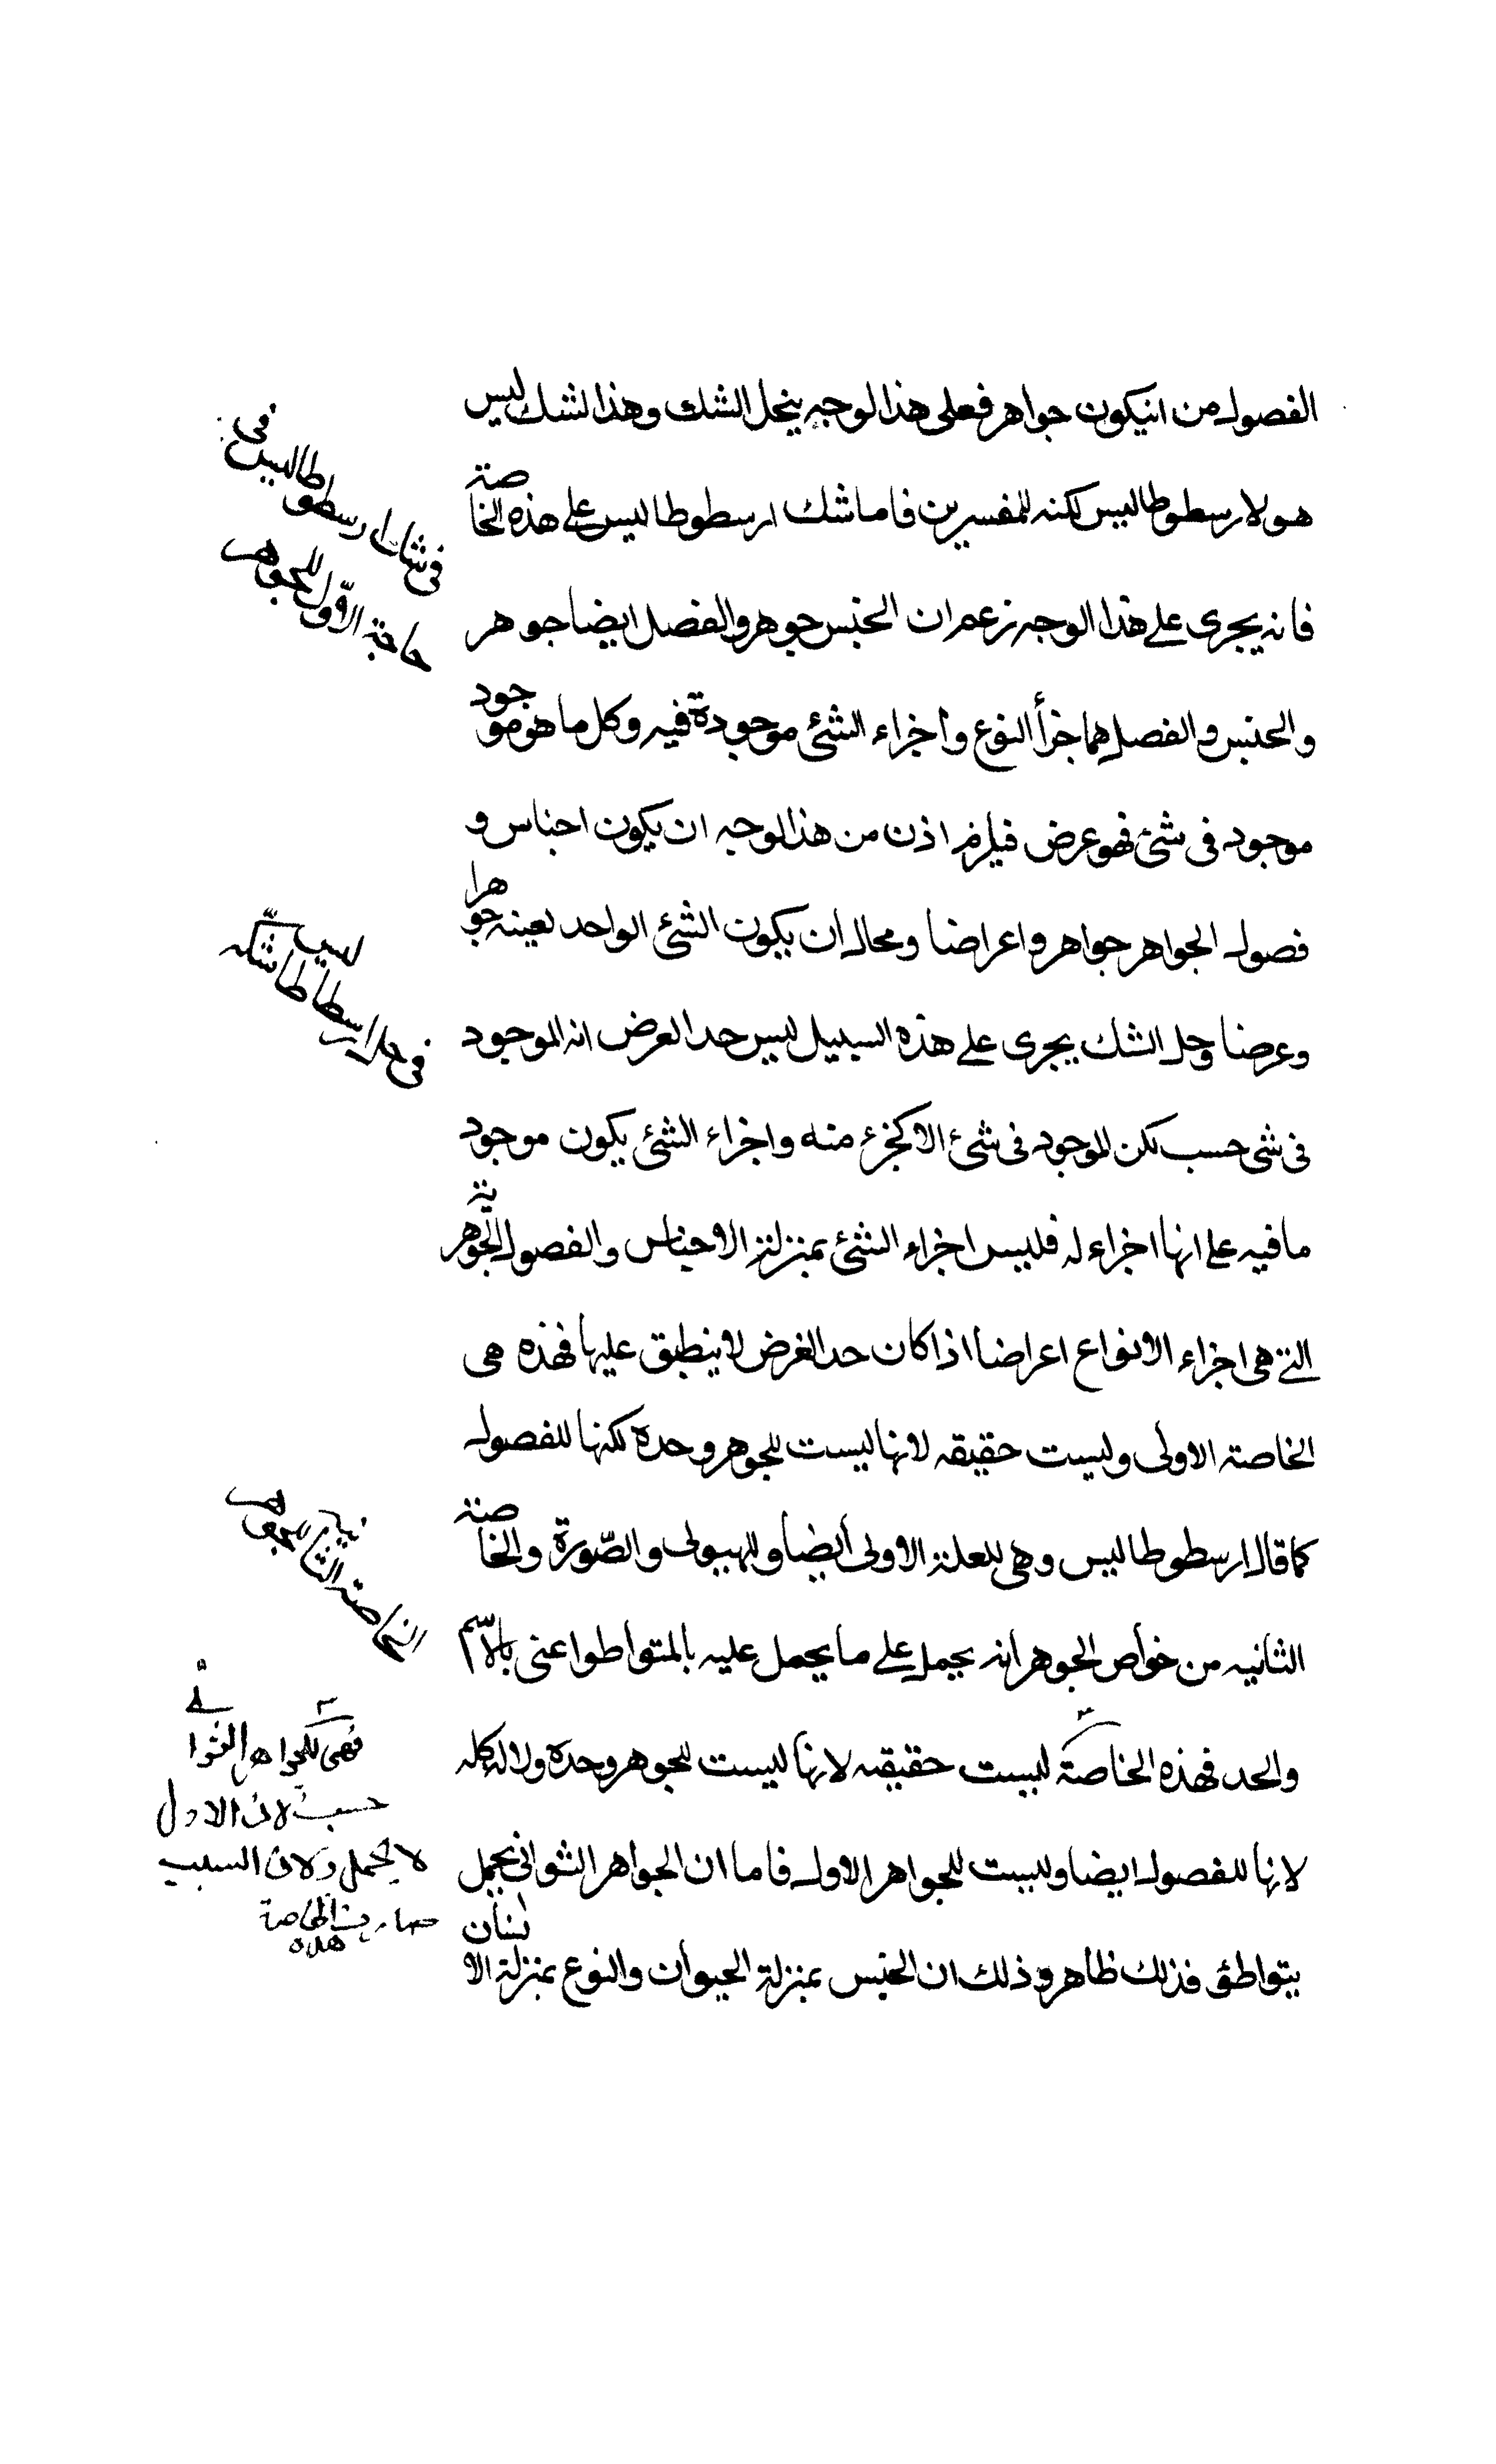 الفصول من انيكون جواهر فعلى هذا لوجه ينحل الشك وهذا لشك ليس
هو لارسطوطاليس لكنه للمفسرين فاما شك ارسطوطاليس على هذه الخاصة
فانه يجرى على هذا الوجه زعم ان الجنس جوهر والفصل ايضا جوهر
والجنس والفصل هما جزأ النوع واجزاء الشئ موجودة فيه وكل ما هو موجود
موجود فى شئ فهو عرض فيلزم اذن من هذا لوجه ان يكون اجناس و
فصول الجواهر جواهر واعراضا ومحال ان يكون الشئ الواحد بعينه جوهرا
وعرضا وحل الشك يجرى على هذه السبيل ليس حد العرض انه الموجود
فى شى حسب لكن الموجود فى شئ لا كجزء منه واجزاء الشئ يكون موجود
ما فيه على انها اجزاء له فليس اجزاء الشئ بمنزلة الاجناس والفصول الجوهرية
التى هى اجزاء الانواع اعراضا اذا كان حد الغرض لا ينطبق عليها فهذه هى
الخاصة الاولى وليست حقيقه لانها ليست للجوهر وحده لكنها للفصول
كما قال ارسطوطاليس وهى للعلة الاولى ايضا وللهيولى والصّورة والخاصة
الثانيه من خواص الجوهر انه يحمل على ما يحمل عليه بالمتواطو اعنى بالاسم
والحد فهذه الخاصة ليست حقيقه لانها ليست للجوهر وحده ولا لكله
لانها للفصول ايضا وليست للجواهر الاول فاما ان الجواهر الثوانى يحمل
بتواطئ فذلك ظاهر وذلك ان الجنس بمنزلة الحيوان والنوع بمنزلة الانسان
فى شك ارسطوطاليس فى
خاصة الاول للجوهر
فى حل ارسطاطاليس شكه
الخاصة الثانية للجوهر
فهى للجواهر الثوانى
حسب لان الاول
لا يحمل ولان السبب
صارت الخاصة
هذه